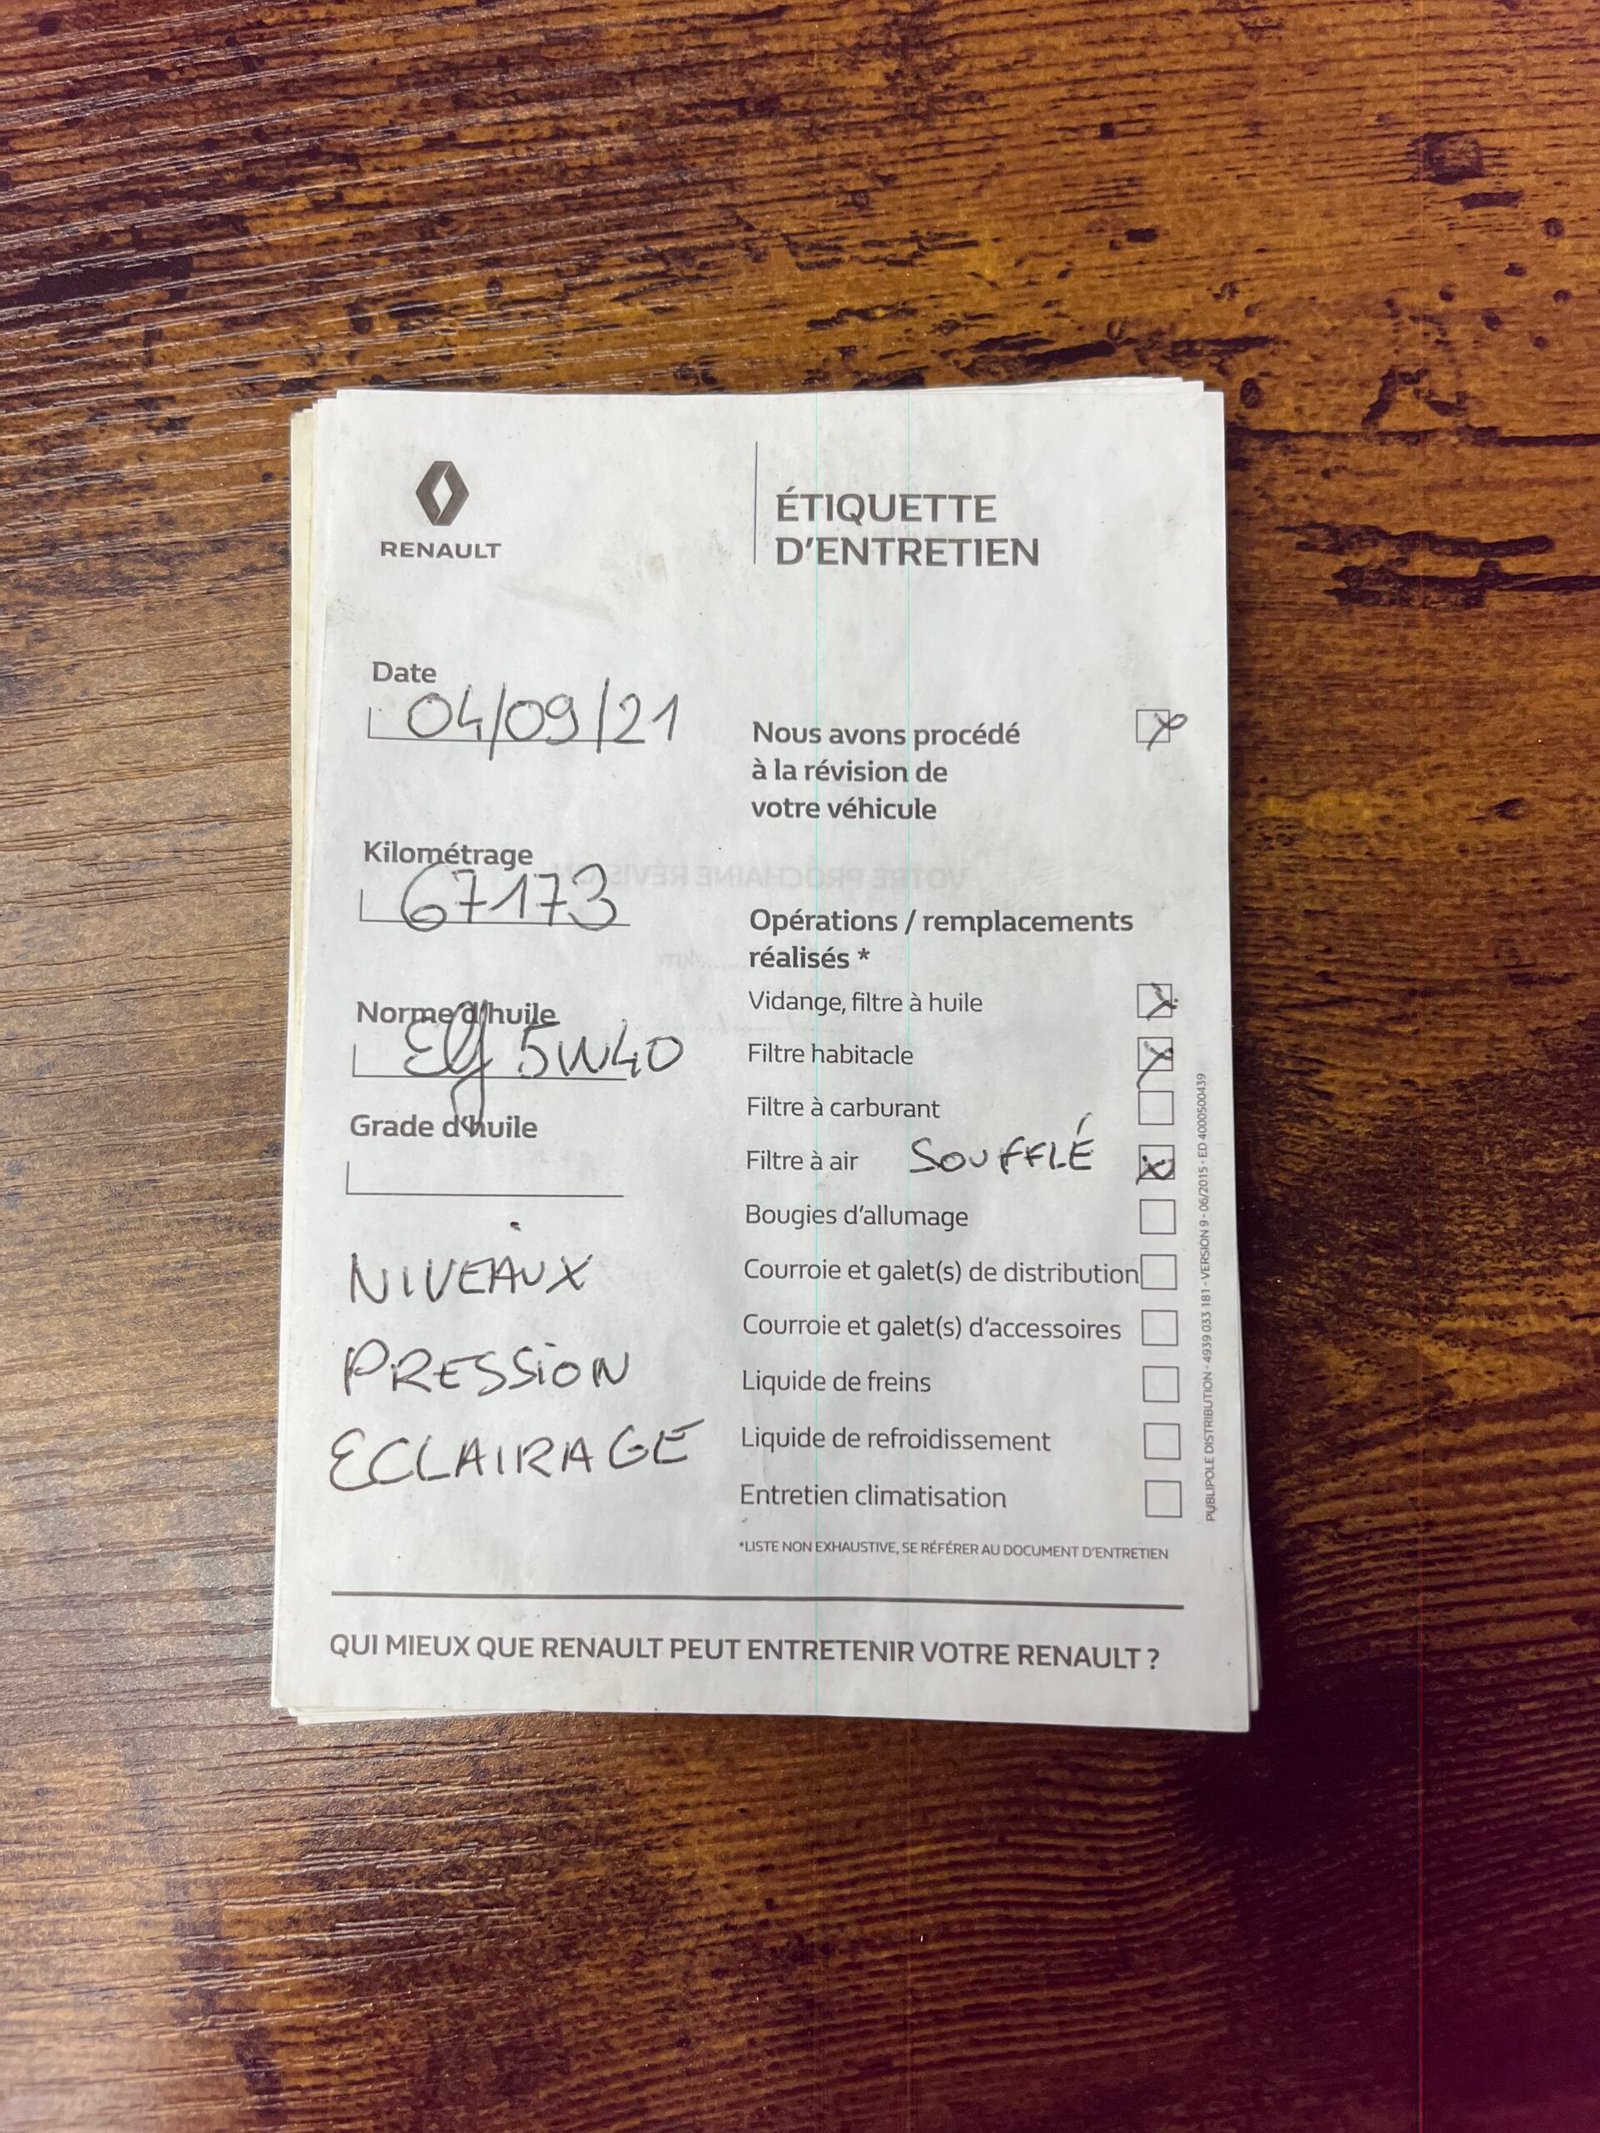 RENAULT
ÉTIQUETTE
D'ENTRETIEN
Date
04/09/21
Kilométrage
67173
Norme d'huile
Elf 5W40
Grade d'huile
NIVEAUX
PRESSION
ECLAIRAGE
Nous avons procédé
à la révision de
votre véhicule
VOTRE PROCHAINE RÉVISION
km
Opérations / remplacements
réalisés *
Vidange, filtre à huile
Filtre habitacle
Filtre à carburant
Filtre à air SOUFFLÉ
Bougies d'allumage
Courroie et galet(s) de distribution
Courroie et galet(s) d'accessoires
Liquide de freins
Liquide de refroidissement
Entretien climatisation
*LISTE NON EXHAUSTIVE, SE RÉFÉRER AU DOCUMENT D'ENTRETIEN
PUBLIPOLE DISTRIBUTION - 4939 033 181 - VERSION 9 - 06/2015 - ED 4000500439
QUI MIEUX QUE RENAULT PEUT ENTRETENIR VOTRE RENAULT ?